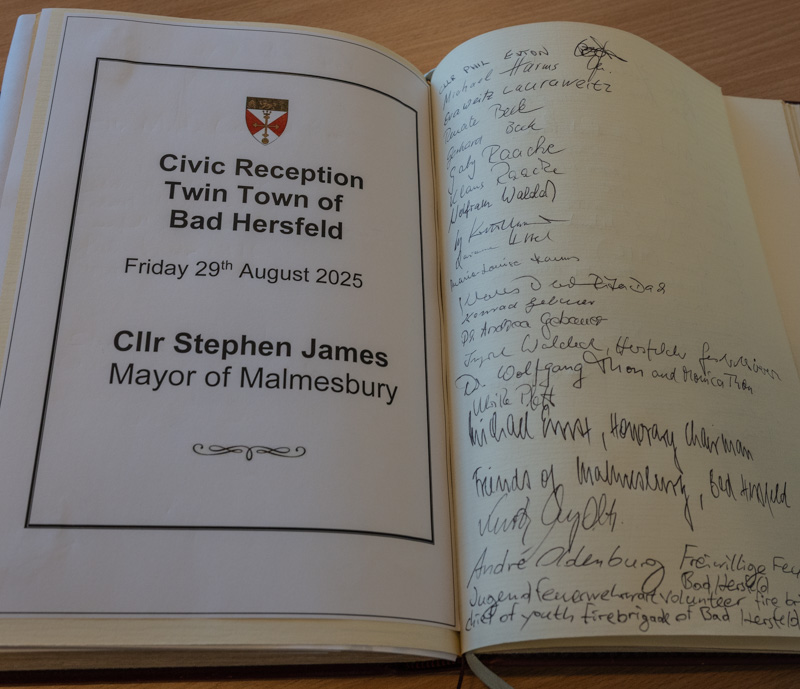 Civic Reception
Twin Town of
Bad Hersfeld
Friday 29th August 2025
Cllr Stephen James
Mayor of Malmesbury
PHIL EXTON
Michael Harms
Lauraweitz
Renate Beck
Beck
Gaby Raacke
Klaus Raacke
Wolfram
Marie-Louise Harms
Konrad Gebauer
Dr. Andrea Gebauer
Dr. Wolfgang Thon and Monica Thon
Ulrike Plett
Michael Ernst, Honorary Chairman
Friends of Malmesbury, Bad Hersfeld
André Oldenburg Freiwillige Feu
Bad Hersfeld
Jugendfeuerwehrwart volunteer fire bri
chief of youth firebrigade of Bad Hersfeld